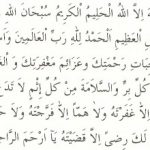 إِلَّا اللَّهُ الْحَلِيمُ الْكَرِيمُ سُبْحَانَ اللَّهِ
الْعَظِيمِ الْحَمْدُ لِلَّهِ رَبِّ الْعَالَمِينَ
رَحْمَتِكَ وَعَزَائِمَ مَغْفِرَتِكَ وَ
مِنْ كُلِّ بِرٍّ وَالسَّلَامَةَ مِنْ كُلِّ إِثْمٍ لَا تَدَعْ
إِلَّا غَفَرْتَهُ وَلَا هَمًّا إِلَّا فَرَّجْتَهُ وَلَا
لَكَ رِضًى إِلَّا قَضَيْتَهَا يَا أَرْحَمَ